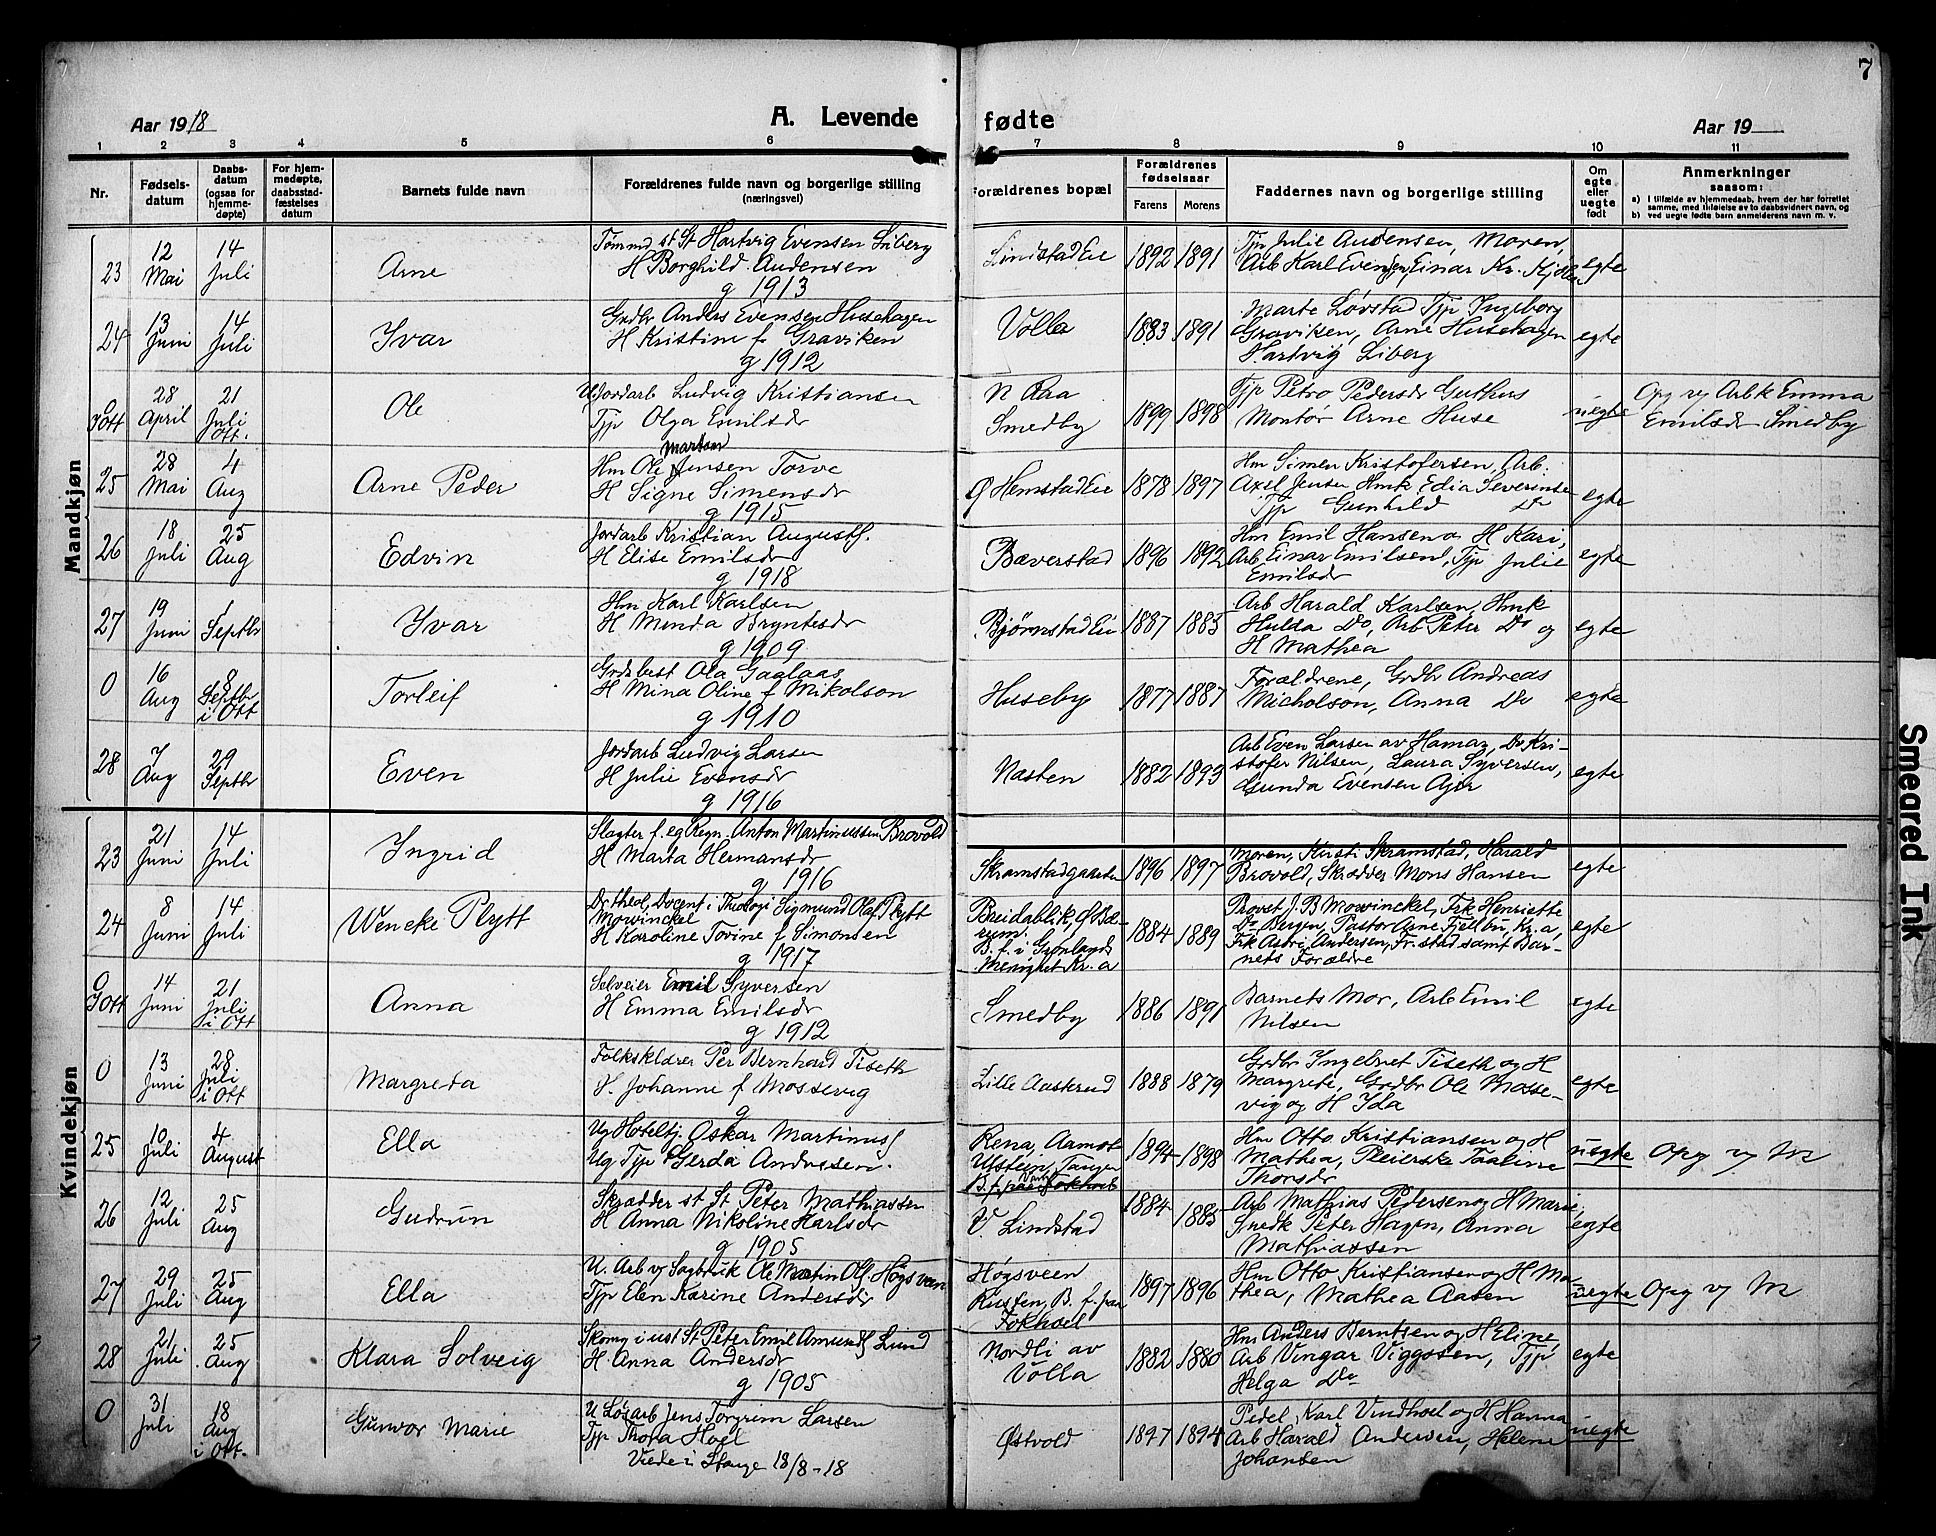 7
Aar 1918
A. Levende fødte
Aar 19
1 2 3 4 5 6 7 8 9 10 11
Nr.
Fødsels-
datum
Daabs-
datum
(ogsaa for
hjemme-
døpte)
For hjem-
medøpte,
daabsstad-
fæstelses
datum
Barnets fulde navn
Forældrenes fulde navn og borgerlige stilling
(næringsvei)
Forældrenes bopæl
Forældrenes
fødselsaar
Farens Morens
Faddernes navn og borgerlige stilling
Om
egte
eller
uegte
født
Anmerkninger
saasom:
a) I tilfælde av hjemmedaab, hvem der har forrettet
samme, med tilføielse av to daabsvidners navn, og
b) ved uegte fødte barn anmelderens navn m. v.
Mandkjøn
23 12 Mai 14 Juli Arne
Tømmd st St Hartvig Evensen Liberg
H Borghild Audensen
g 1913
Lindstad Eie 1892 1891
Tjp Julie Audensen, Moren,
Arb Karl Evensen, Einar Kr.
egte
24 13 Juni 14 Juli Ivar
Grdbr Anders Evensen Husehagen
H Kristine f Graviken
g 1912
Volla 1883 1891
Marte Løvstad Tjp Ingeborg
Graviken, Arne Husehagen
Hartvig Liberg
egte
Gott 28 April 21 Juli Ott. Ole
U. Jordarb Ludvig Kristiansen
Tjp Olga Emilsdr
N Raa
Smedby 1899 1898
Tjp Petro Pedersdr Guthus
Montør Arne Huse
uegte
Opg v/ Arbk Emma
Emilsdr Smedby
25 28 Mai 4 Aug Arne Peder
Martin
Hm Ole Jensen Torve
H Signe Simensdr
g 1915
Ø Hemstad Eie 1878 1897
Hm Simen Kristofersen, Arb.
Axel Jensen Hmk Edia Severinsen
Tjp Gunhild Do
egte
26 18 Juli 25 Aug Edvin
Jordarb Kristian Augustf.
H Elise Emilsdr
g 1918
Bæverstad 1896 1892
Hm Emil Hansen og H Kari,
Arb Einar Emilsen, Tjp Julie
Emilsdr
egte
27 19 Juni 1 Septbr Ivar
Hm Karl Karlsen
H Menda Bryntesdr
g 1909
Bjørnstad Eie 1887 1885
Arb Harald Karlsen, Hmk
Hulda Do, Arb Peter Do og
H Mathea
egte
0 16 Aug 8 Septbr i Ott Torleif
Grdsbest Ola Gaalaas
H Mina Oline f Mikolson
g 1910
Huseby 1877 1887
Forældrene, Grdbr Andreas
Micholson, Anna Do
egte
28 7 Aug 29 Septbr Even
Jordarb Ludvig Larsen
H Julie Evensdr
g 1916
Nasten 1882 1893
Arb Even Larsen av Hamar, Do Kri-
stofer Nilsen, Laura Syversen,
Gunda Evensen Ajer
egte
Kvindekjøn
23 21 Juni 14 Juli Ingrid
Slagter f. eg Regn. Anton Martinussen Brovold
H Marta Hermansdr
g 1916
Skramstadgaarden 1896 1897
Moren, Kirsti Skramstad, Harald
Brovold, Skrædder Mons Hansen
egte
24 8 Juni 14 Juli Wencke Plytt
Dr theol, Docent i Theologi Sigmund Olaf Plytt
Mowinckel
H Karoline Tovine f Simonsen
g 1917
Breidablik, Ø Bæ-
rum.
B. f. i Grønlands
Menighet Kr.a 1884 1889
Provst J. B Mowinckel, Frk Henriette
Do Bergen, Pastor Arne Fjellbu, Kr.a,
Frk Astri Andersen, Fr.stad samt Bar-
nets Forældre
egte
Gott 14 Juni 21 Juli i Ott Anna
Selveier Emil Syversen
H Emma Emilsdr
g 1912
Smedby 1886 1891
Barnets Mor, Arb Emil
Nilsen
egte
0 13 Juni 28 Juli i Ott Margreta
Folkskl.ærer Per Bernhard Tiseth
H. Johanne f Mossevig
g
Lille Aaskrud 1888 1879
Grdbr Ingebret Tiseth og H
Margrete, Grdbr Ole Mosse-
vig og H Ida
egte
25 10 Juli 4 August Ella
Ug Hotelbj. Oskar Martinusf
Ug Tjp Gerda Andresen.
Rena, Aamot
Ulstein, Tangen
B. f. paa Fokhoel 1894 1898
Hm Otto Kristiansen og H
Mathea, Pleierske Taaline
Thorsdr
uegte Opg v/ M
26 12 Juli 25 Aug Gudrun
Skrædder st St Peter Mathiassen
H Anna Nikoline Karlsdr
g 1905
V. Lindstad 1884 1885
Arb Mathias Pedersen og H Marie,
Snedk Peter Hagen, Anna
Mathiassen
egte
27 29 Juli 25 Aug Ella
U. Arb v/ Sagbruk Ole Martin Olf. Høgsveen
Tjp Elen Karine Andersdr
Høgsveen
Rusten, B. f. paa
Fokhoel 1897 1896
Hm Otto Kristiansen og H Ma-
thea, Mathea Aasen
uegte Opg v/ M
28 21 Juli 25 Aug Klara Solveig
Skomg i ust St Peter Emil Amundf Lund
H. Anna Andersdr
g 1905
Nordli av
Volla 1882 1880
Hm Anders Berntsen og H Eline,
Arb Vingar Viggosen, Tjp
Helga Do
egte
0 31 Juli 18 Aug i Ott. Gunvor Marie
U Løsarb Jens Torgrim Larsen
Tjp Thora Hoel
Viede i Stange 18/8-18
Østvold 1897 1894
Pedel Karl Vindhoel og H Hanna
Arb Harald Andersen, Helene
Johansen
uegte
Smeared Ink